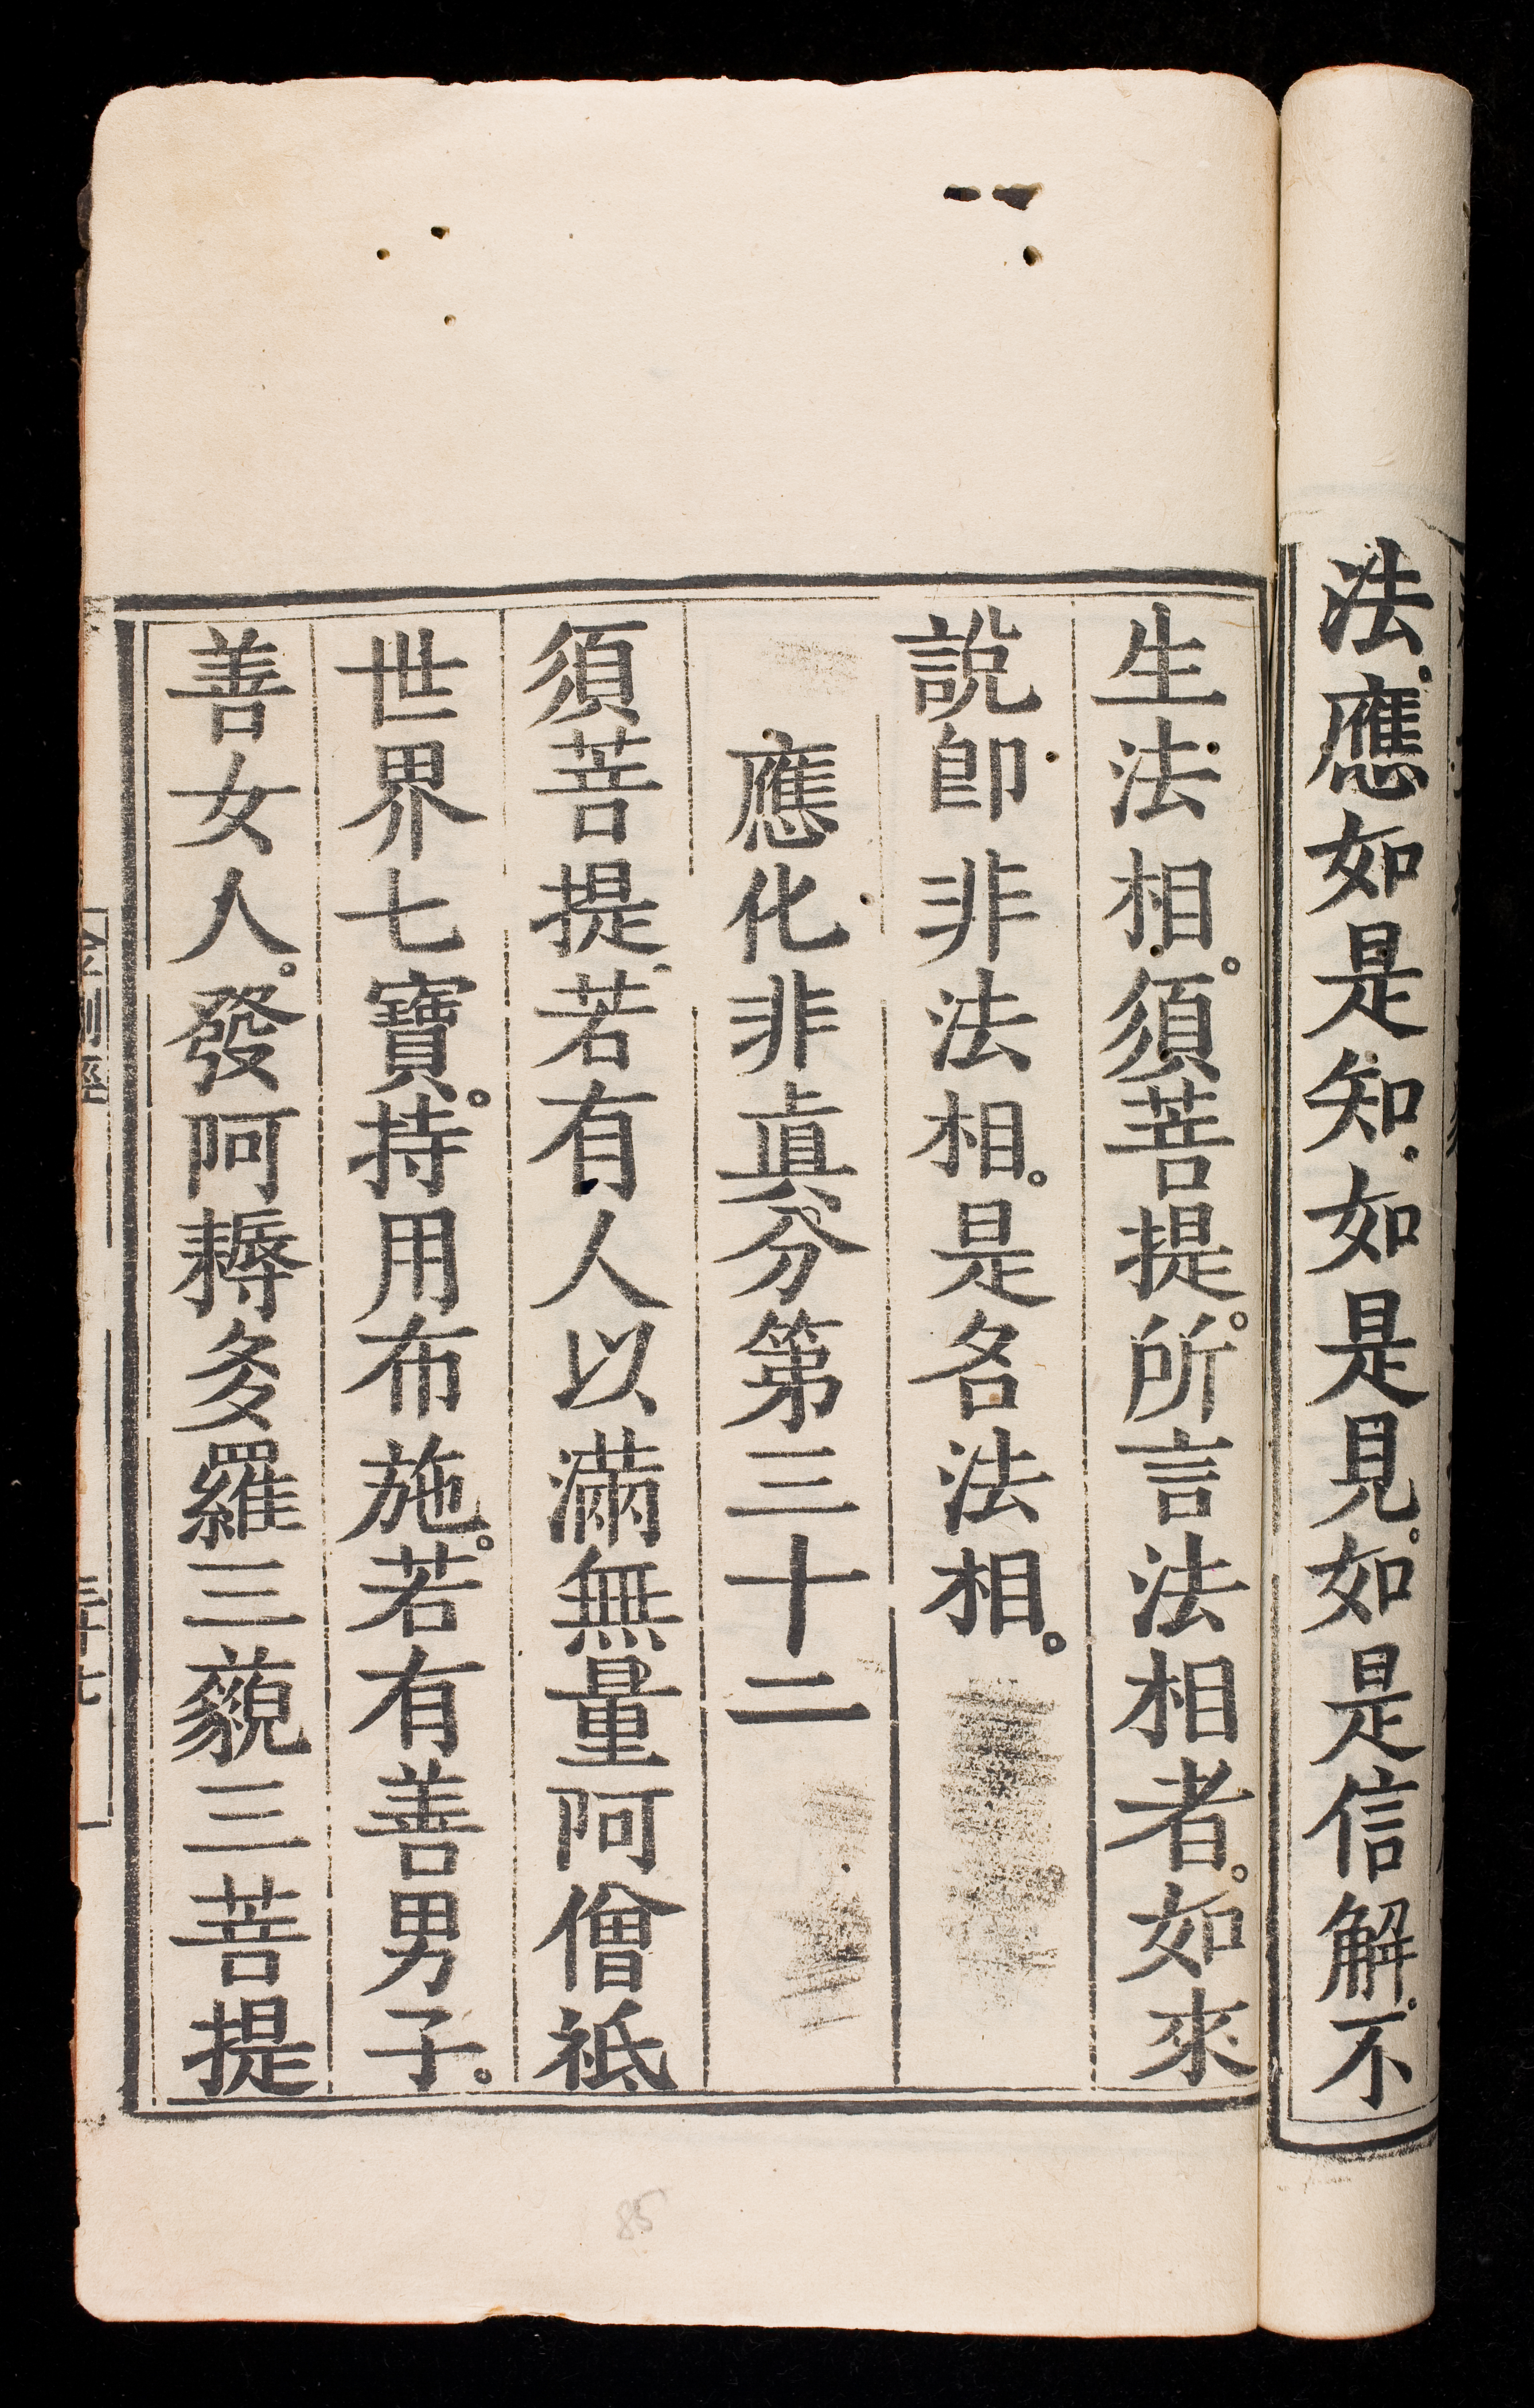 法。應如是知。如是見。如是信解。不
生法相。須菩提。所言法相者。如來
說卽非法相。是名法相。
應化非眞分第三十二
須菩提。若有人以滿無量阿僧祇
世界七寶。持用布施。若有善男子。
善女人。發阿耨多羅三藐三菩提
85